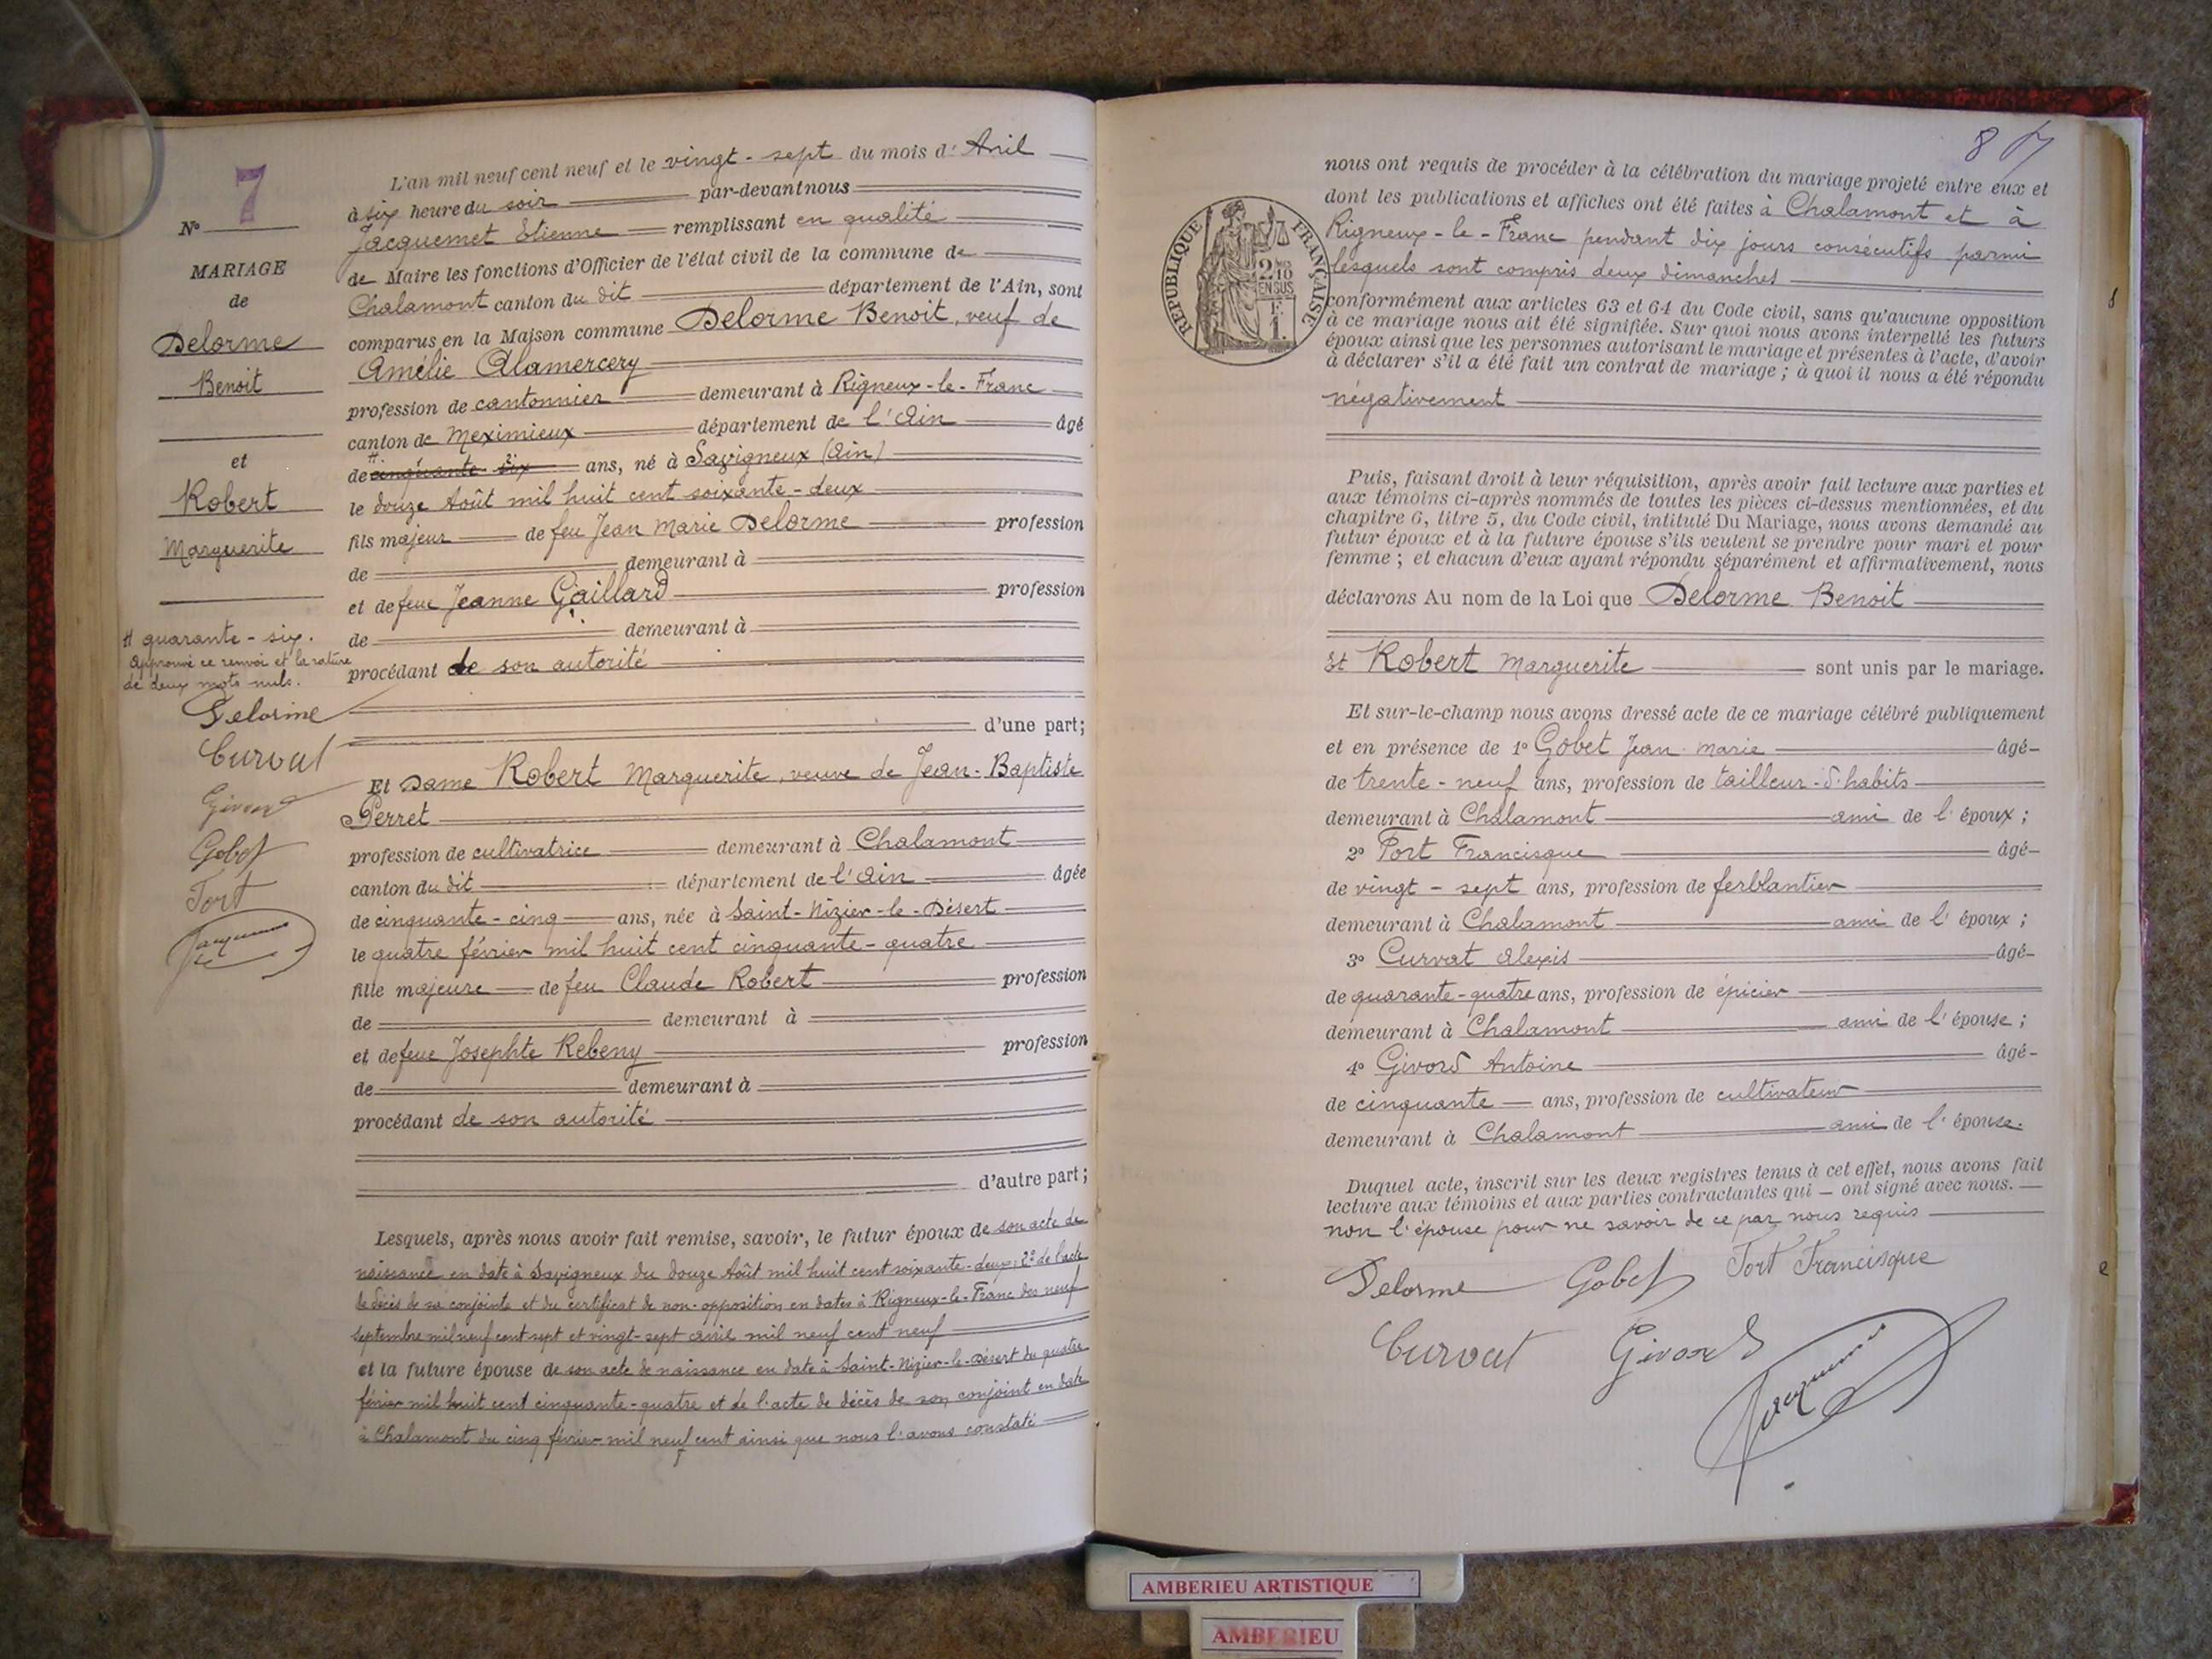 N° 7
MARIAGE
de
Delorme
Benoit
et
Robert
Marguerite
# quarante-six.
Approuvé ce renvoi et la rature
de deux mots nuls.
Delorme
Curvat
Givord
Gobet
Tort
Jacquemet
L'an mil neuf cent neuf et le vingt-sept du mois d'Avril
à six heure du soir par-devant nous
Jacquemet Etienne remplissant en qualité
de Maire les fonctions d'Officier de l'état civil de la commune de
Chalamont canton du dit département de l'Ain, sont
comparus en la Maison commune Delorme Benoit, veuf de
Amélie Alamercery
profession de cantonnier demeurant à Rigneux-le-Franc
canton de Meximieux département de l'Ain âgé
de # cinquante-six ans, né à Savigneux (Ain)
le douze Août mil huit cent soixante-deux
fils majeur de feu Jean Marie Delorme profession
de demeurant à
et de feue Jeanne Gaillard profession
de demeurant à
procédant de son autorité
d'une part;
Et Dame Robert Marguerite, veuve de Jean-Baptiste
Perret
profession de cultivatrice demeurant à Chalamont
canton du dit département de l'Ain âgée
de cinquante-cinq ans, née à Saint-Nizier-le-Désert
le quatre février mil huit cent cinquante-quatre
fille majeure de feu Claude Robert profession
de demeurant à
et de feue Josephte Rebeny profession
de demeurant à
procédant de son autorité
d'autre part;
Lesquels, après nous avoir fait remise, savoir, le futur époux de son acte de
naissance en date à Savigneux du douze Août mil huit cent soixante-deux; 2° de l'acte
de décès de sa conjointe et du certificat de non-opposition en dates à Rigneux-le-Franc des neuf
septembre mil neuf cent sept et vingt-sept avril mil neuf cent neuf
et la future épouse de son acte de naissance en date à Saint-Nizier-le-Désert du quatre
février mil huit cent cinquante-quatre et de l'acte de décès de son conjoint en date
à Chalamont du cinq février mil neuf cent ainsi que nous l'avons constaté
8
REPUBLIQUE FRANÇAISE
2/10 EN SUS
1F
nous ont requis de procéder à la célébration du mariage projeté entre eux et
dont les publications et affiches ont été faites à Chalamont et à
Rigneux-le-Franc pendant dix jours consécutifs parmi
lesquels sont compris deux dimanches
conformément aux articles 63 et 64 du Code civil, sans qu'aucune opposition
à ce mariage nous ait été signifiée. Sur quoi nous avons interpellé les futurs
époux ainsi que les personnes autorisant le mariage et présentes à l'acte, d'avoir
à déclarer s'il a été fait un contrat de mariage; à quoi il nous a été répondu
négativement
Puis, faisant droit à leur réquisition, après avoir fait lecture aux parties et
aux témoins ci-après nommés de toutes les pièces ci-dessus mentionnées, et du
chapitre 6, titre 5, du Code civil, intitulé Du Mariage, nous avons demandé au
futur époux et à la future épouse s'ils veulent se prendre pour mari et pour
femme; et chacun d'eux ayant répondu séparément et affirmativement, nous
déclarons Au nom de la Loi que Delorme Benoit
et Robert Marguerite sont unis par le mariage.
Et sur-le-champ nous avons dressé acte de ce mariage célébré publiquement
et en présence de 1° Gobet Jean-Marie âgé
de trente-neuf ans, profession de tailleur-d'habits
demeurant à Chalamont ami de l'époux;
2° Tort Francisque âgé
de vingt-sept ans, profession de ferblantier
demeurant à Chalamont ami de l'époux;
3° Curvat Alexis âgé
de quarante-quatre ans, profession de épicier
demeurant à Chalamont ami de l'épouse;
4° Givord Antoine âgé
de cinquante ans, profession de cultivateur
demeurant à Chalamont ami de l'épouse.
Duquel acte, inscrit sur les deux registres tenus à cet effet, nous avons fait
lecture aux témoins et aux parties contractantes qui ont signé avec nous.
non l'épouse pour ne savoir de ce par nous requis
Delorme Gobet Tort Francisque
Curvat Givord
Jacquemet
AMBERIEU ARTISTIQUE
AMBERIEU